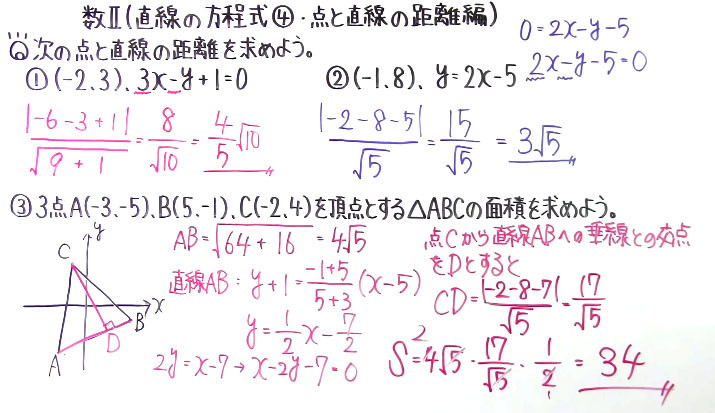 数Ⅱ(直線の方程式④・点と直線の距離編)
◎次の点と直線の距離を求めよう。
0=2x-y-5
①(-2、3)、3x-y+1=0
②(-1、8)、y=2x-5
2x-y-5=0
|-6-3+1|/√(9+1) = 8/√10 = 4/5√10
|-2-8-5|/√5 = 15/√5 = 3√5
③3点A(-3、-5)、B(5、-1)、C(-2、4)を頂点とする△ABCの面積を求めよう。
y
C
x
B
D
A
AB=√(64+16)=4√5
直線AB: y+1=(-1+5)/(5+3)(x-5)
y=1/2x-7/2
2y=x-7→x-2y-7=0
点Cから直線ABへの垂線との交点
をDとすると
CD=|-2-8-7|/√5=17/√5
S=4√5・17/√5・1/2=34
2
1